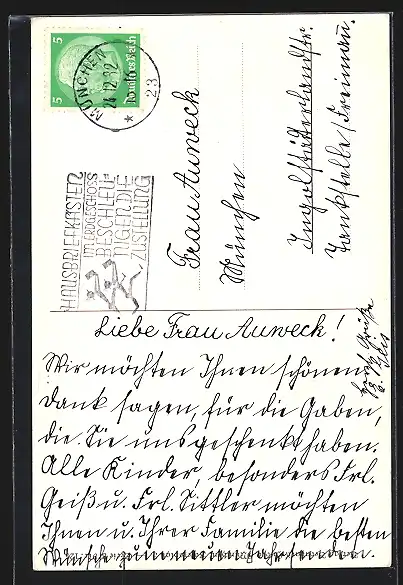 5 5
Deutsches Reich
MÜNCHEN
23
HAUSBRIEFKÄSTEN
IM ERDGESCHOSS
BESCHLEU-
NIGEN DIE
ZUSTELLUNG
Frau Auweck
München
Ingolstädterlandstr.
Tankstelle/Freimann.
Liebe Frau Auweck!
Wir möchten Ihnen schönen
Dank sagen, für die Gaben,
die Sie uns geschenkt haben.
Alle Kinder, besonders Frl.
Geiß u. Frl. Sittler möchten
Ihnen u. Ihrer Familie die besten
Wünsche zum neuen Jahr senden.
Grüße